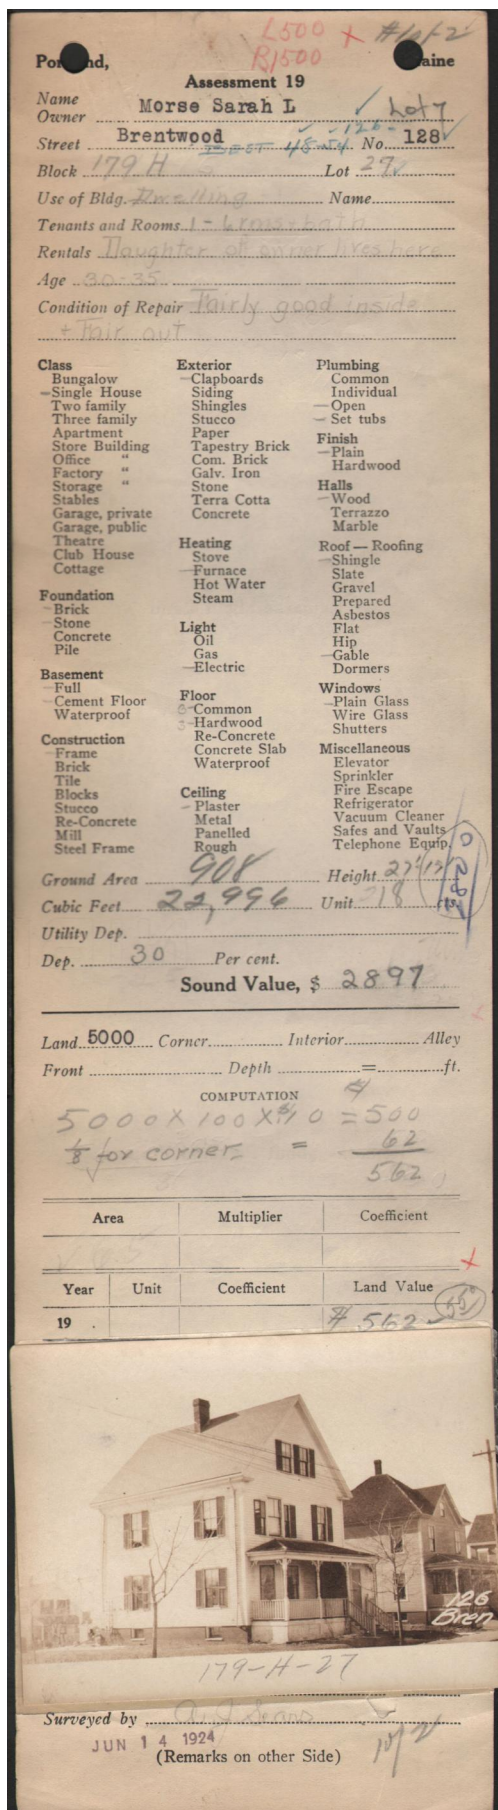 L500 X #1 of 2
B1500
Portland, Maine
Assessment 19
Name
Owner Morse Sarah L ✓ Lot 7
Street Brentwood 48-54 126- No. 128 ✓
Block 179 H Lot 27 ✓
Use of Bldg. Dwelling Name
Tenants and Rooms 1 - 6 rms + bath
Rentals Daughter of owner lives here
Age 30-35
Condition of Repair Fairly good inside
+ Fair out
Class
Bungalow
Single House
Two family
Three family
Apartment
Store Building
Office "
Factory "
Storage "
Stables
Garage, private
Garage, public
Theatre
Club House
Cottage
Foundation
Brick
Stone
Concrete
Pile
Basement
Full
Cement Floor
Waterproof
Construction
Frame
Brick
Tile
Blocks
Stucco
Re-Concrete
Mill
Steel Frame
Exterior
Clapboards
Siding
Shingles
Stucco
Paper
Tapestry Brick
Com. Brick
Galv. Iron
Stone
Terra Cotta
Concrete
Heating
Stove
Furnace
Hot Water
Steam
Light
Oil
Gas
Electric
Floor
Common
3 Hardwood
Re-Concrete
Concrete Slab
Waterproof
Ceiling
Plaster
Metal
Panelled
Rough
Plumbing
Common
Individual
Open
Set tubs
Finish
Plain
Hardwood
Halls
Wood
Terrazzo
Marble
Roof — Roofing
Shingle
Slate
Gravel
Prepared
Asbestos
Flat
Hip
Gable
Dormers
Windows
Plain Glass
Wire Glass
Shutters
Miscellaneous
Elevator
Sprinkler
Fire Escape
Refrigerator
Vacuum Cleaner
Safes and Vaults
Telephone Equip.
Ground Area 908 Height
Cubic Feet 22,996 Unit 18
Utility Dep.
Dep. 30 Per cent.
Sound Value, $ 2897
Land 5000 Corner Interior Alley
Front Depth = ft.
COMPUTATION
5000 X 100 X $.10 = 500
1/8 for corner = 62
562
Area Multiplier Coefficient
X
Year Unit Coefficient Land Value
19 # 562
126
Bren
179-H-27
Surveyed by A. J. Sears
JUN 14 1924
(Remarks on other Side)